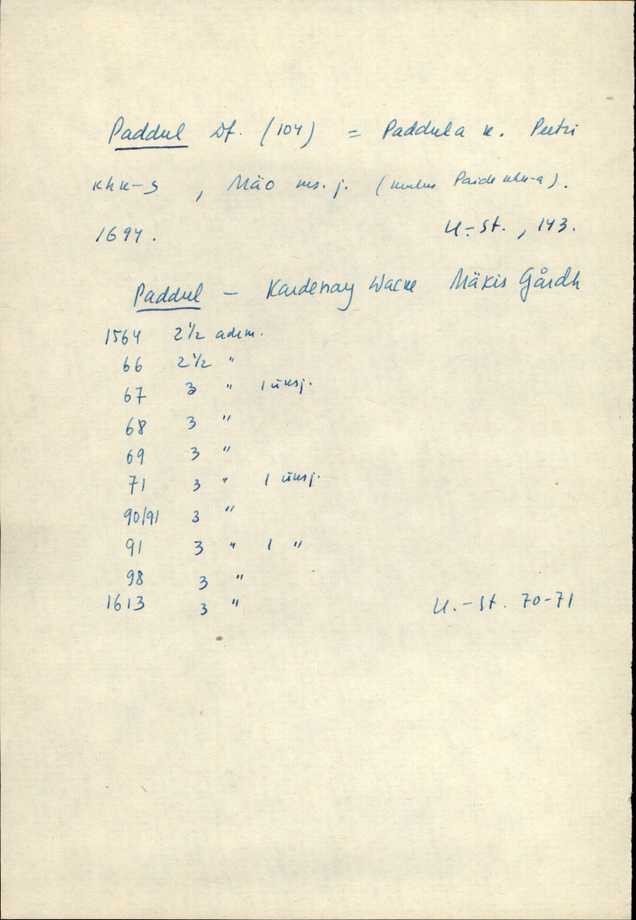 Paddul Df. (104) = Paddula k. Peetri
khk-s, Mäo ms. j. ( Paide khk-a).
1694. U.-St., 143.
Paddul – Kardenay Wacke Mäkis Gårdh
1564 2 1/2 adrm.
66 2 1/2 "
67 3 " 1 üksj.
68 3 "
69 3 "
71 3 " 1 üksj.
90/91 3 "
91 3 " 1 "
98 3 "
1613 3 " U.-St. 70-71